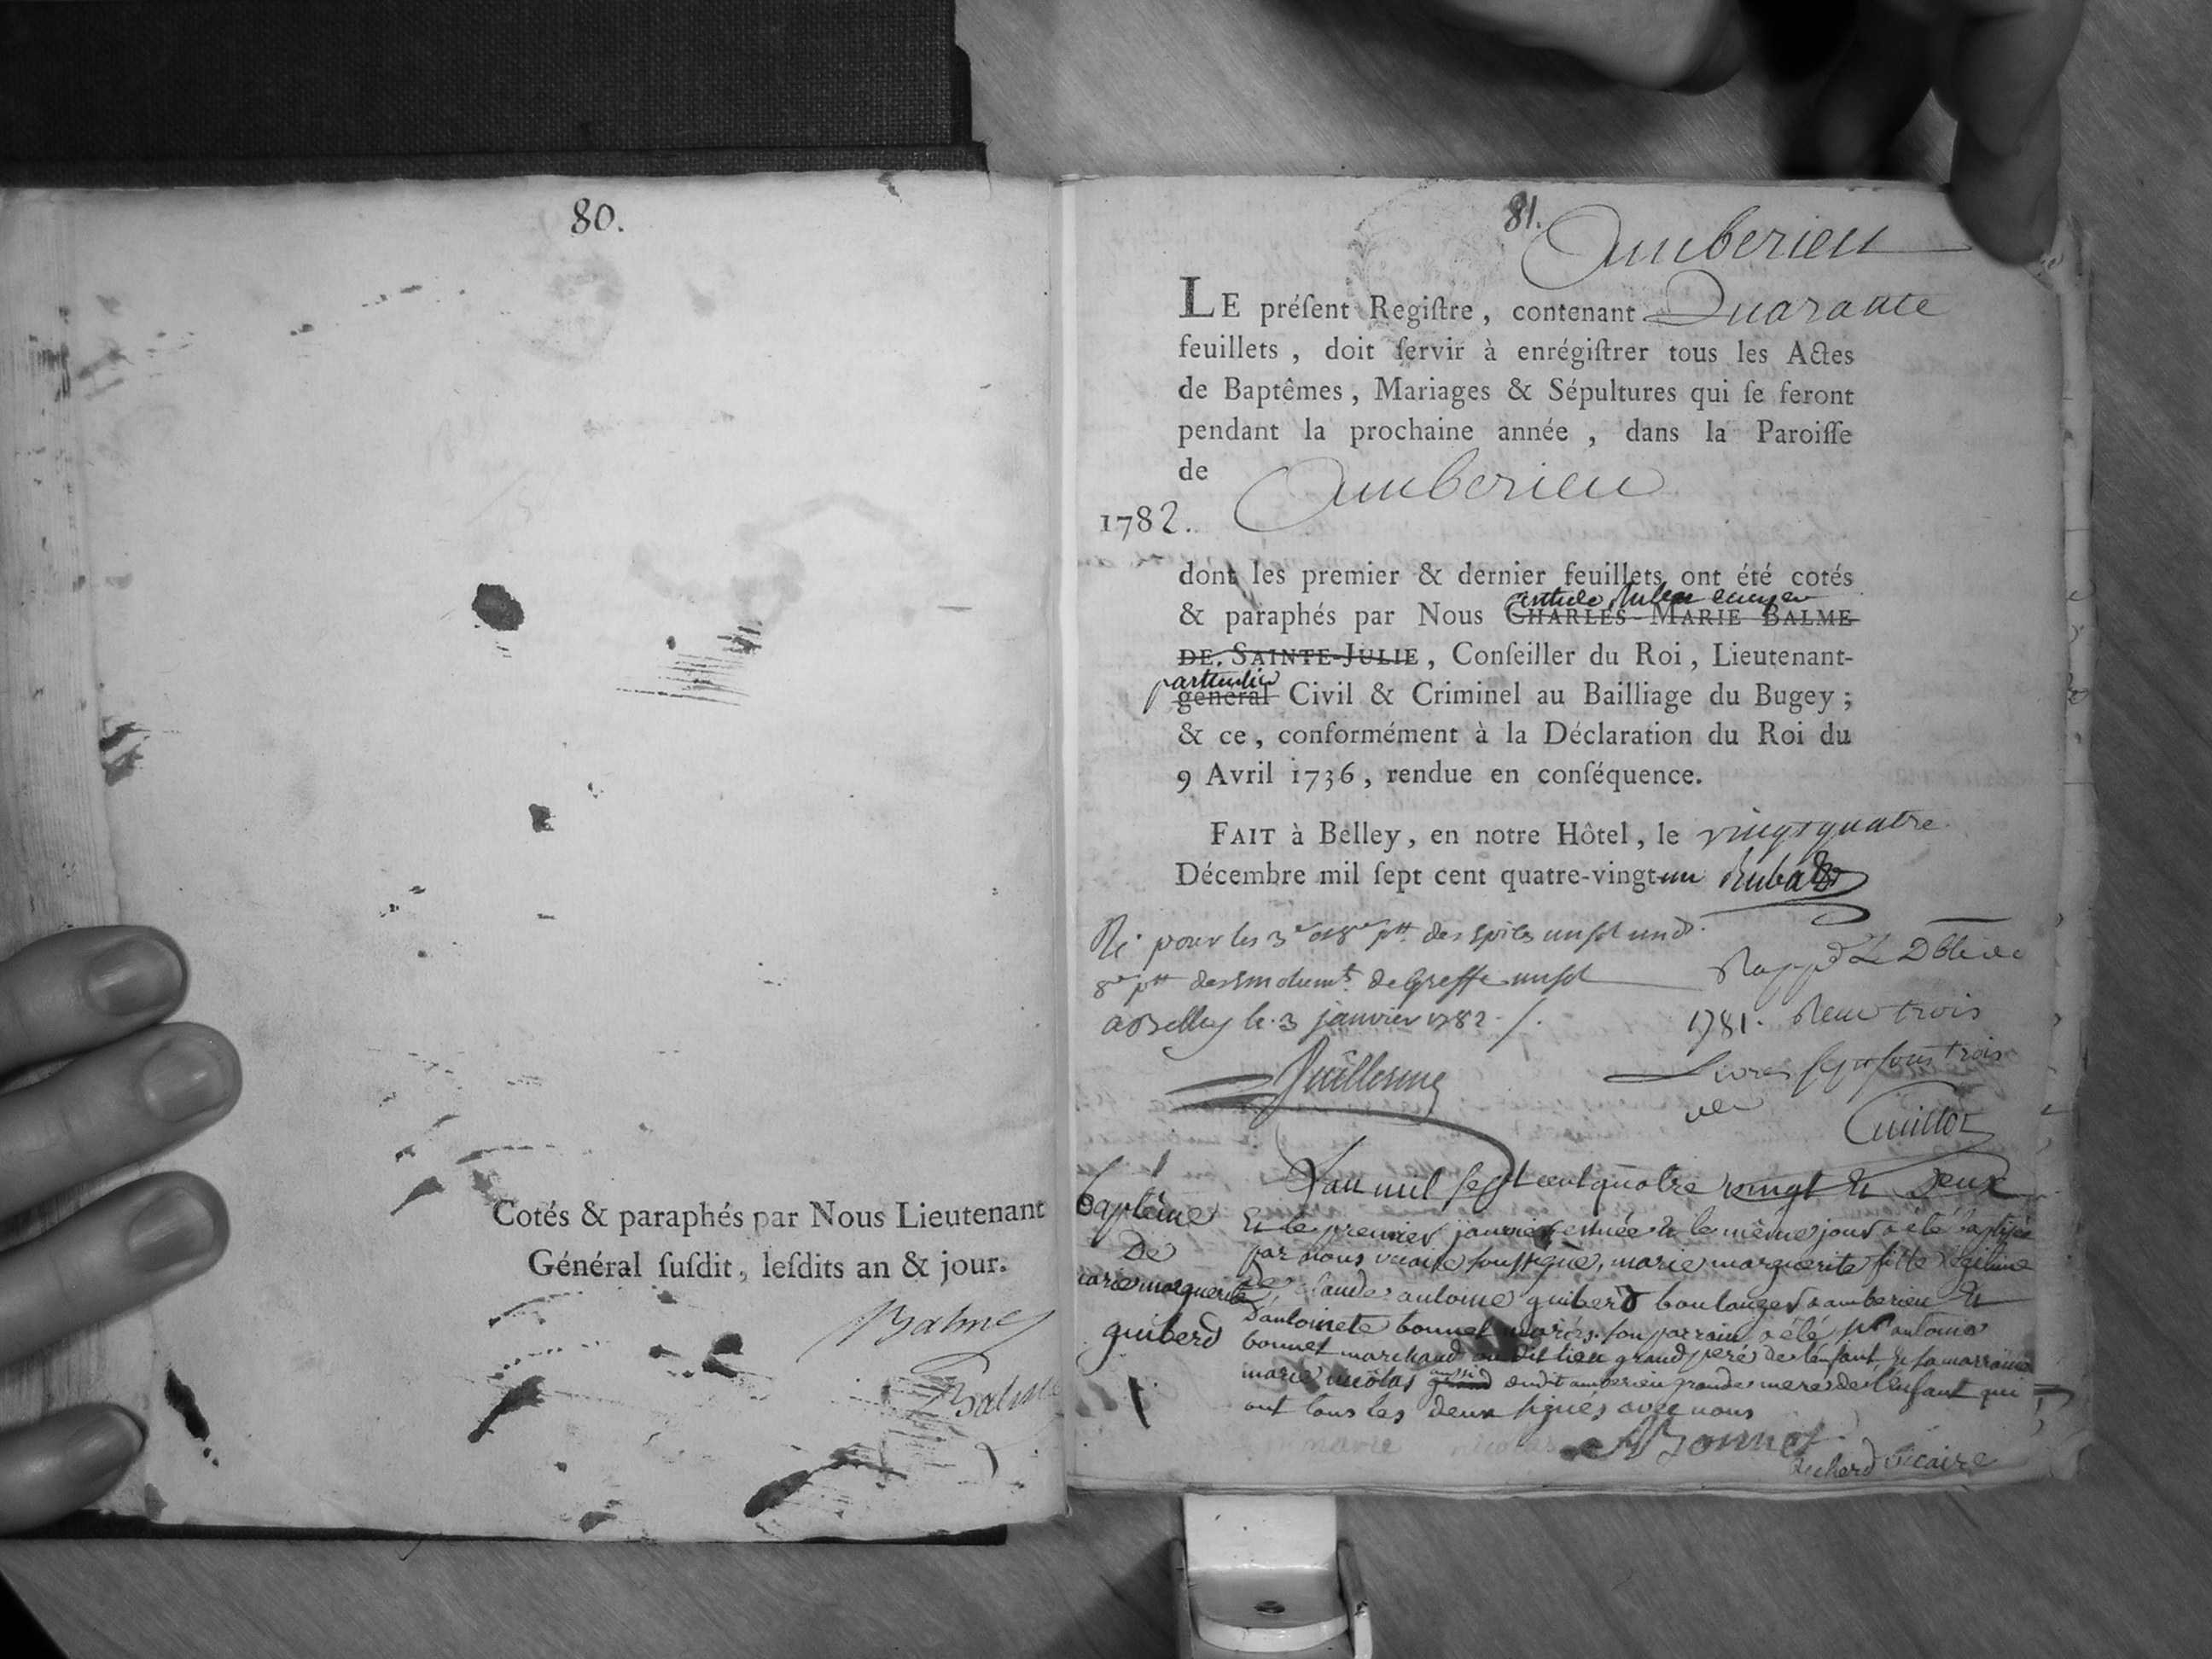 80.
Cotés & paraphés par Nous Lieutenant
Général ſuſdit, leſdits an & jour.
Balme
Balme
81.
Amberieu
LE préſent Regiſtre, contenant Quarante
feuillets, doit ſervir à enrégiſtrer tous les Actes
de Baptêmes, Mariages & Sépultures qui ſe feront
pendant la prochaine année, dans la Paroiſſe
de Amberieu
1782.
dont les premier & dernier feuillets ont été cotés
& paraphés par Nous CHARLES-MARIE BALME
DE SAINTE-JULIE, Conſeiller du Roi, Lieutenant-
particulier
général Civil & Criminel au Bailliage du Bugey ;
& ce, conformément à la Déclaration du Roi du
9 Avril 1736, rendue en conſéquence.
FAIT à Belley, en notre Hôtel, le vingt quatre
Décembre mil ſept cent quatre-vingt-un
pour les 3e
de Greffe un sol
a Belley le 3 janvier 1782
1781. trois
Livres sept sous trois
Guillot
L'an mil sept cent quatre vingt et deux
Baptême
De
marie marguerite
guiberd
Et le premier janvier est née et le même jour a été baptisée
par nous vicaire soussigné, marie marguerite fille légitime
de claude antoine guiberd boulanger a amberieu et
d'antoinete bonnet mariés. son parrain a été antoine
bonnet marchand audit lieu grand pere de l'enfant et sa marraine
marie nicolas aussi grand dudit amberieu grande mere de l'enfant qui
ont tous les deux signés avec nous
marie nicolas Bonnet
vicaire